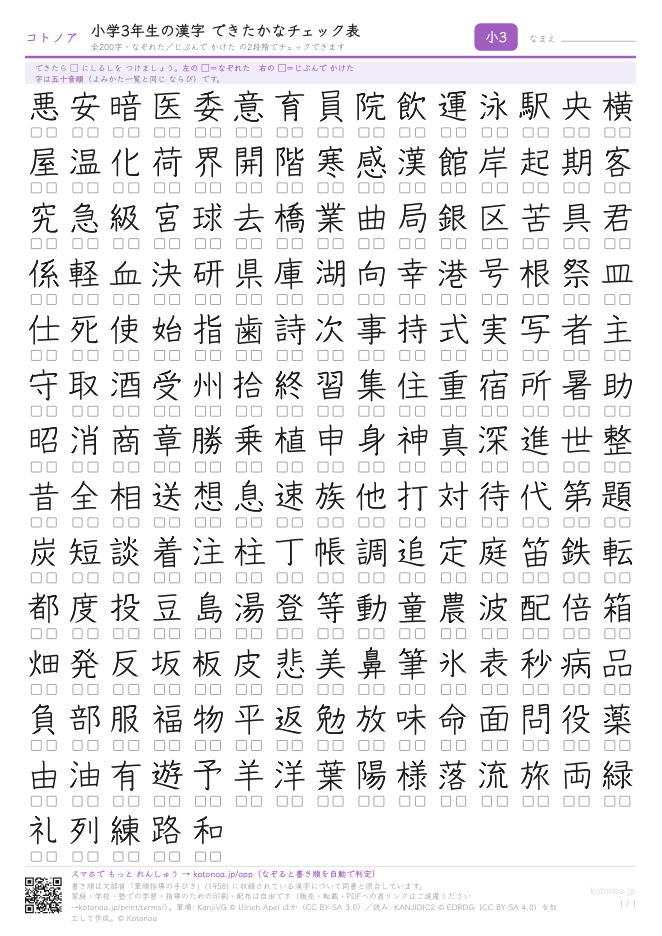 コトノア
小学3年生の漢字 できたかなチェック表
全200字・なぞれた／じぶんで かけた の2段階でチェックできます
小3
なまえ
できたら □ にしるしを つけましょう。左の □＝なぞれた　右の □＝じぶんで かけた
字は五十音順（よみかた一覧と同じ ならび）です。
悪 安 暗 医 委 意 育 員 院 飲 運 泳 駅 央 横
屋 温 化 荷 界 開 階 寒 感 漢 館 岸 起 期 客
究 急 級 宮 球 去 橋 業 曲 局 銀 区 苦 具 君
係 軽 血 決 研 県 庫 湖 向 幸 港 号 根 祭 皿
仕 死 使 始 指 歯 詩 次 事 持 式 実 写 者 主
守 取 酒 受 州 拾 終 習 集 住 重 宿 所 暑 助
昭 消 商 章 勝 乗 植 申 身 神 真 深 進 世 整
昔 全 相 送 想 息 速 族 他 打 対 待 代 第 題
炭 短 談 着 注 柱 丁 帳 調 追 定 庭 笛 鉄 転
都 度 投 豆 島 湯 登 等 動 童 農 波 配 倍 箱
畑 発 反 坂 板 皮 悲 美 鼻 筆 氷 表 秒 病 品
負 部 服 福 物 平 返 勉 放 味 命 面 問 役 薬
由 油 有 遊 予 羊 洋 葉 陽 様 落 流 旅 両 緑
礼 列 練 路 和
スマホで もっと れんしゅう → kotonoa.jp/app（なぞると書き順を自動で判定）
書き順は文部省「筆順指導の手びき」(1958) に収録されている漢字について同書と照合しています。
家庭・学校・塾での学習・指導のための印刷・配布は自由です（販売・転載・PDFへの直リンクはご遠慮ください
→kotonoa.jp/print/terms/）。筆順: KanjiVG © Ulrich Apel ほか（CC BY-SA 3.0）／読み: KANJIDIC2 © EDRDG（CC BY-SA 4.0）を加
工して作成。© Kotonoa
kotonoa.jp
1 / 1